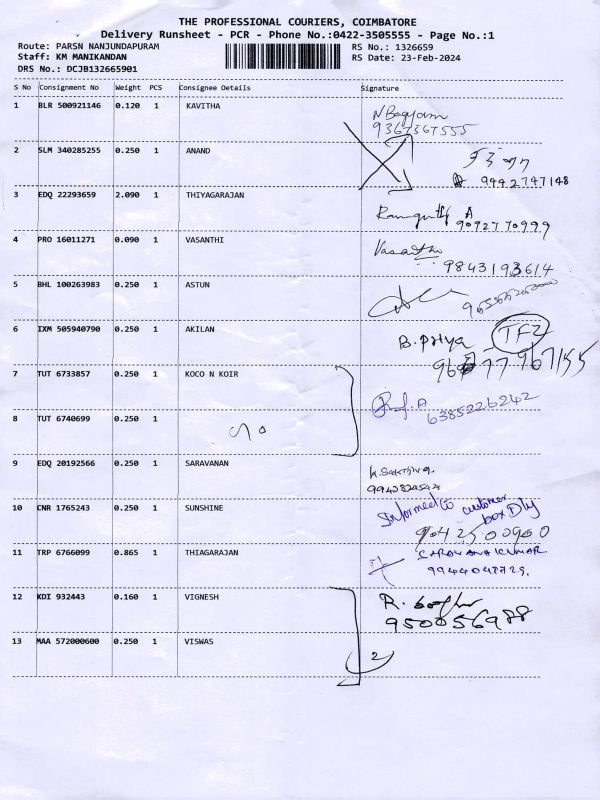 THE PROFESSIONAL COURIERS, COIMBATORE
Delivery Runsheet - PCR - Phone No.:0422-3505555 - Page No.:1
Route: PARSN NANJUNDAPURAM
RS No.: 1326659
Staff: KM MANIKANDAN
RS Date: 23-Feb-2024
DRS No.: DCJB132665901
S No Consignment No Weight PCS Consignee Details Signature
1 BLR 500921146 0.120 1 KAVITHA
9367567555
2 SLM 340285255 0.250 1 ANAND
9942747148
3 EDQ 22293659 2.090 1 THIYAGARAJAN
9092770999
4 PRO 16011271 0.090 1 VASANTHI
Vasanthi
9843193614
5 BHL 100263983 0.250 1 ASTUN
6 IXM 505940790 0.250 1 AKILAN
B. Priya
7 TUT 6733857 0.250 1 KOCO N KOIR
6385226242
8 TUT 6740699 0.250 1
9 EDQ 20192566 0.250 1 SARAVANAN
10 CNR 1765243 0.250 1 SUNSHINE
Informed to customer
box Dly
11 TRP 6766099 0.865 1 THIAGARAJAN
SARAVANAKUMAR
12 KDI 932443 0.160 1 VIGNESH
950056988
13 MAA 572000600 0.250 1 VISWAS
2